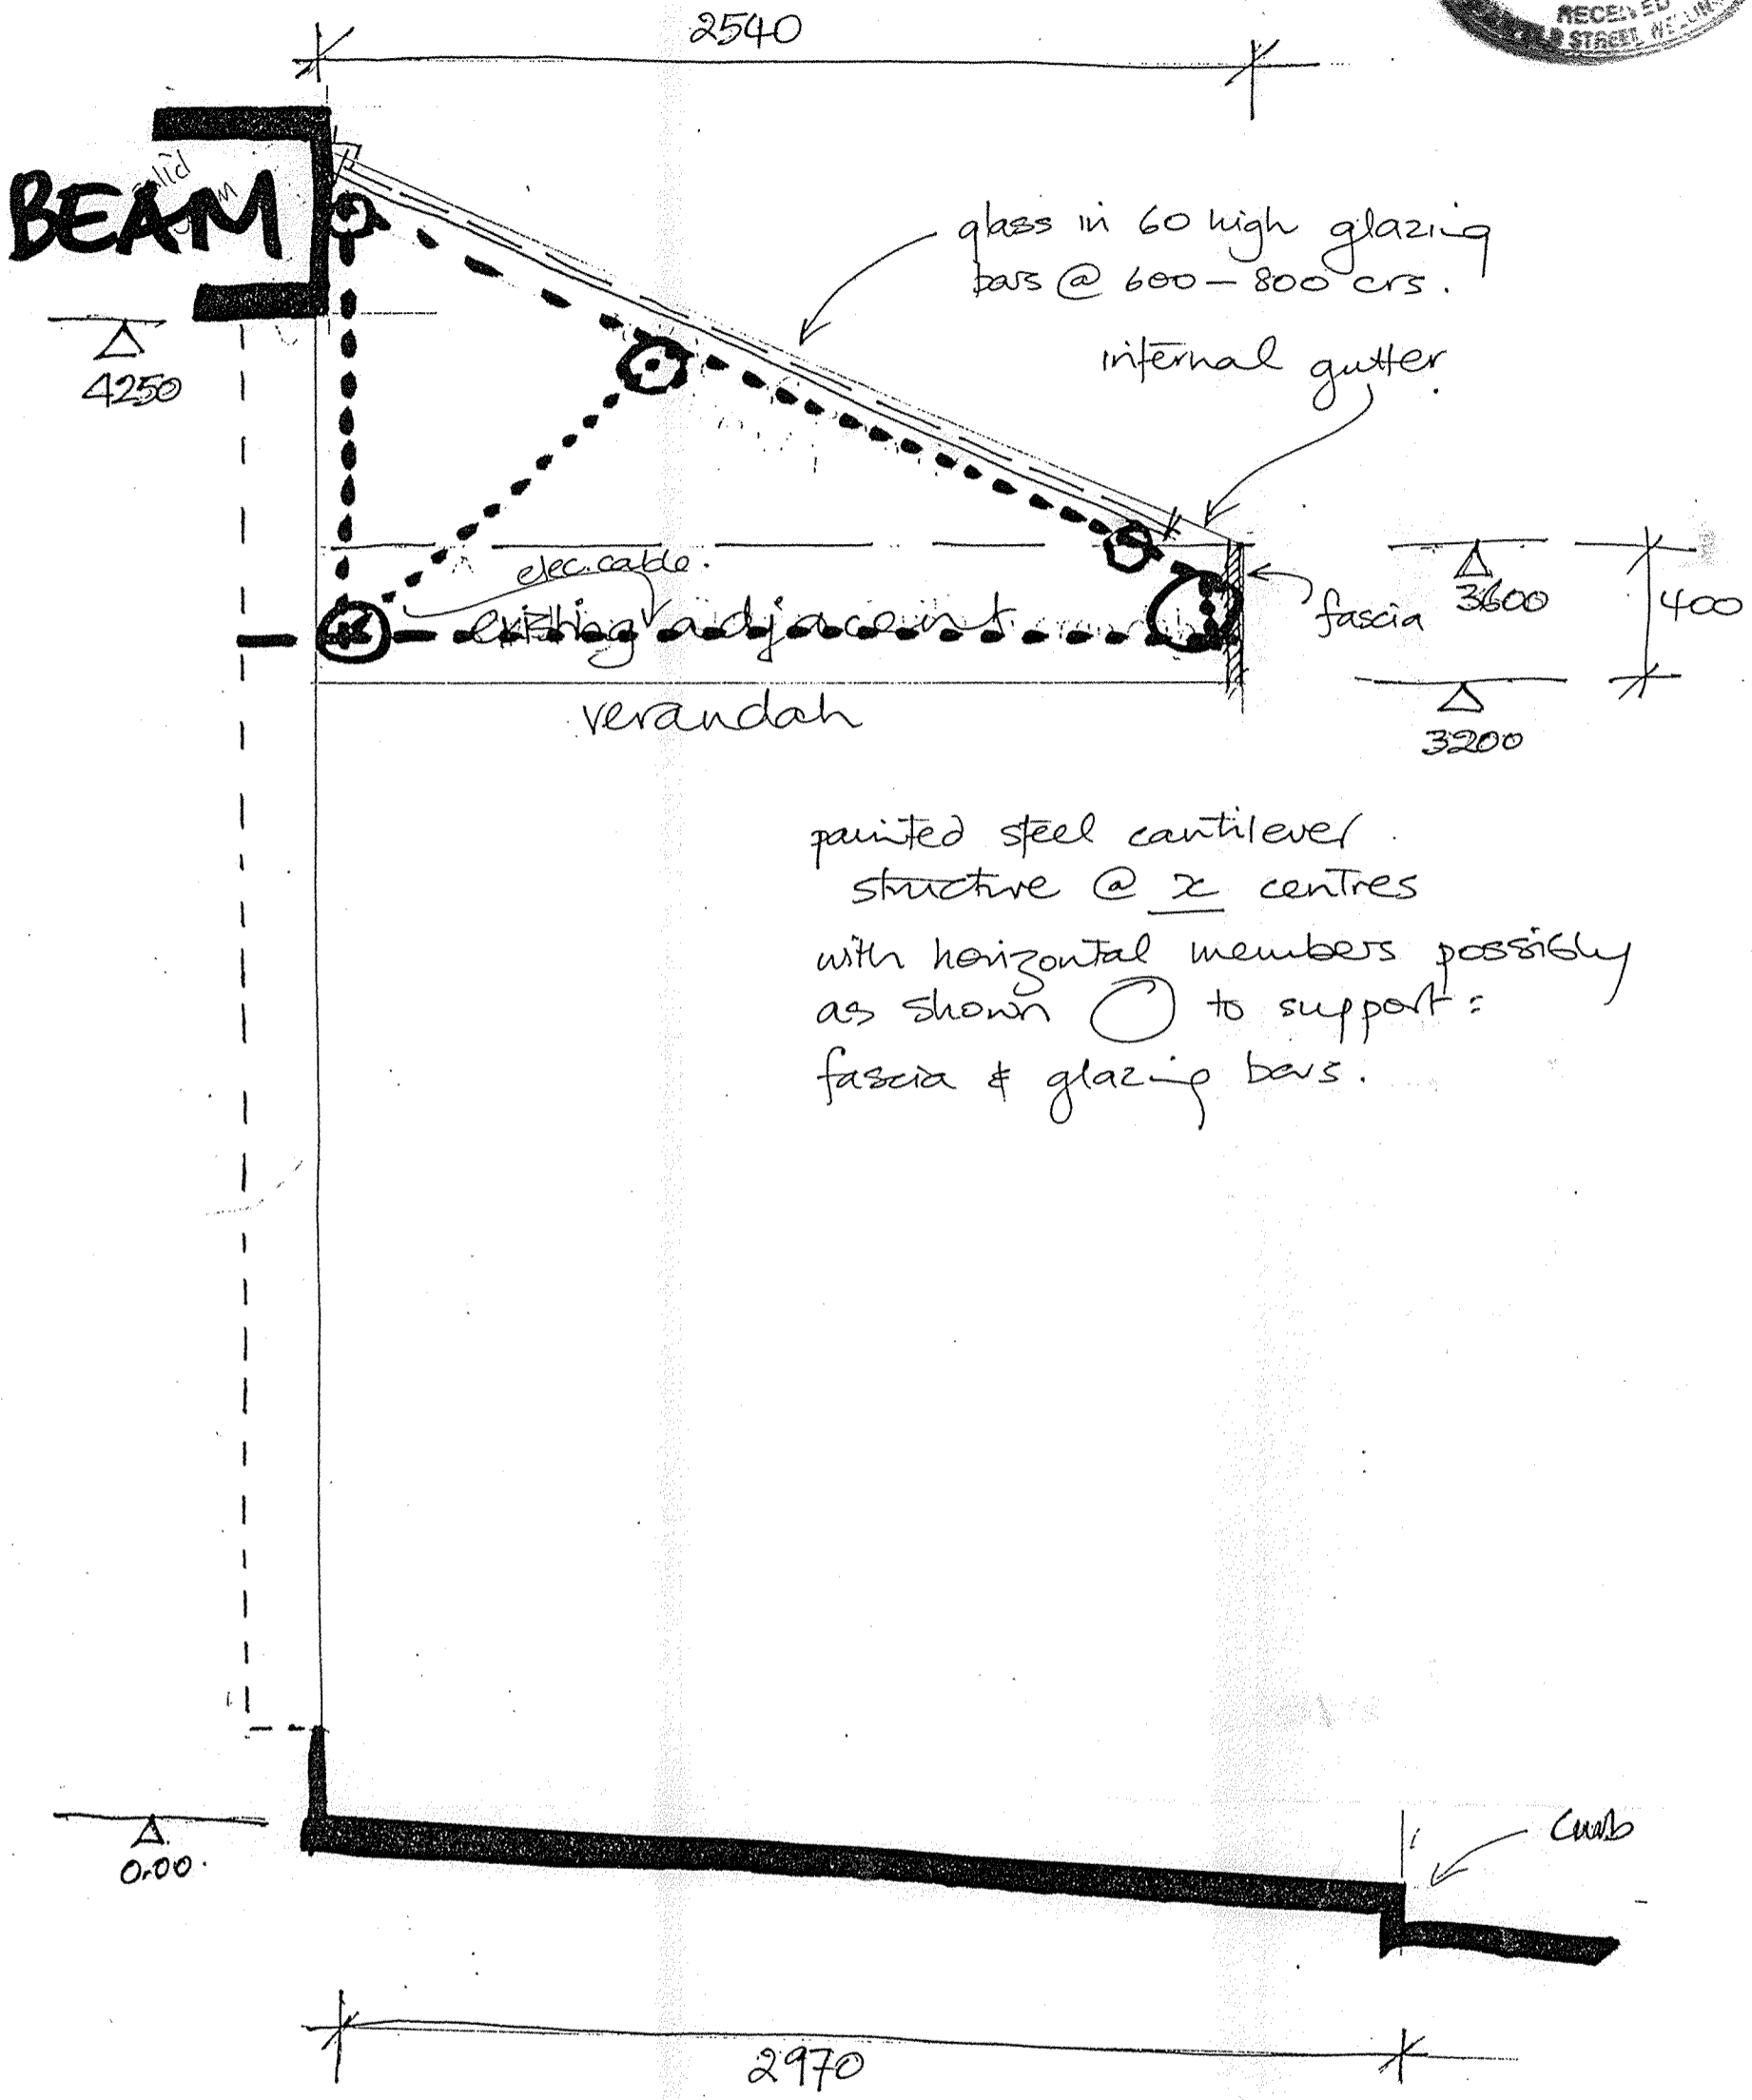 2540
RECEIVED
STREET, WELLIN
BEAM
glass in 60 high glazing
bars @ 600 – 800 crs.
internal gutter
4250
elec. cable.
existing adjacent
verandah
fascia
3600
400
3200
painted steel cantilever
structure @ x centres
with horizontal members possibly
as shown to support :
fascia & glazing bars.
0.00.
Curb
2970